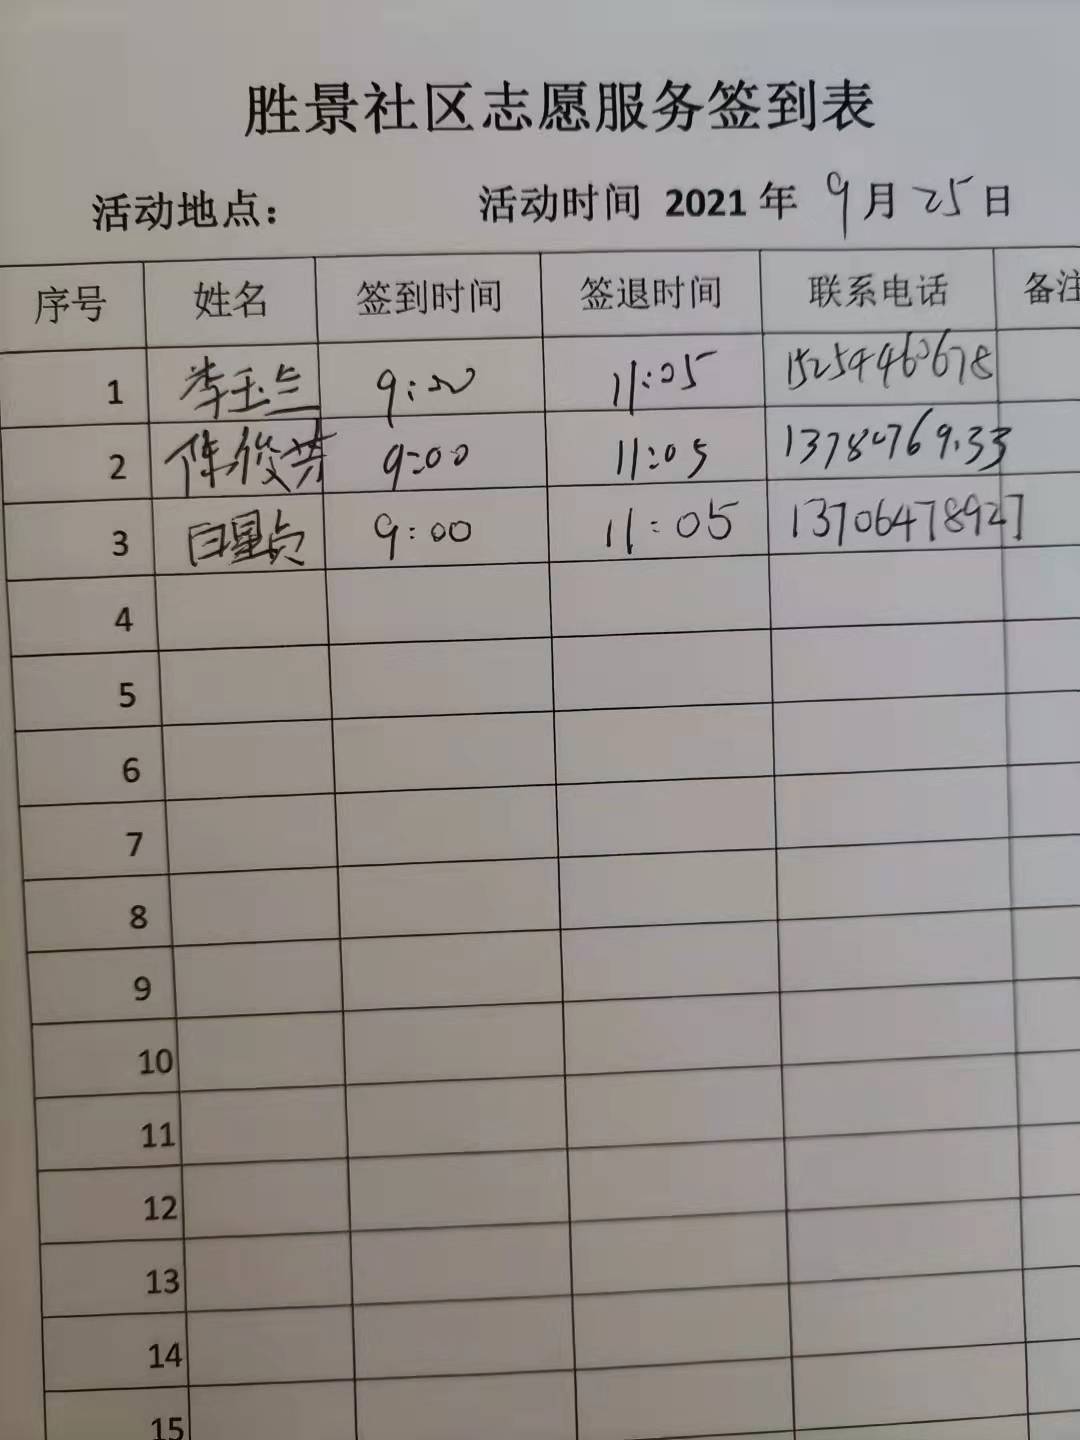 胜景社区志愿服务签到表
活动地点： 活动时间 2021 年 9 月 25 日
序号 姓名 签到时间 签退时间 联系电话 备注
1 李玉兰 9:00 11:05 15254460678
2 陈俊芳 9:00 11:05
3 9:00 11:05 13706478927
4
5
6
7
8
9
10
11
12
13
14
15